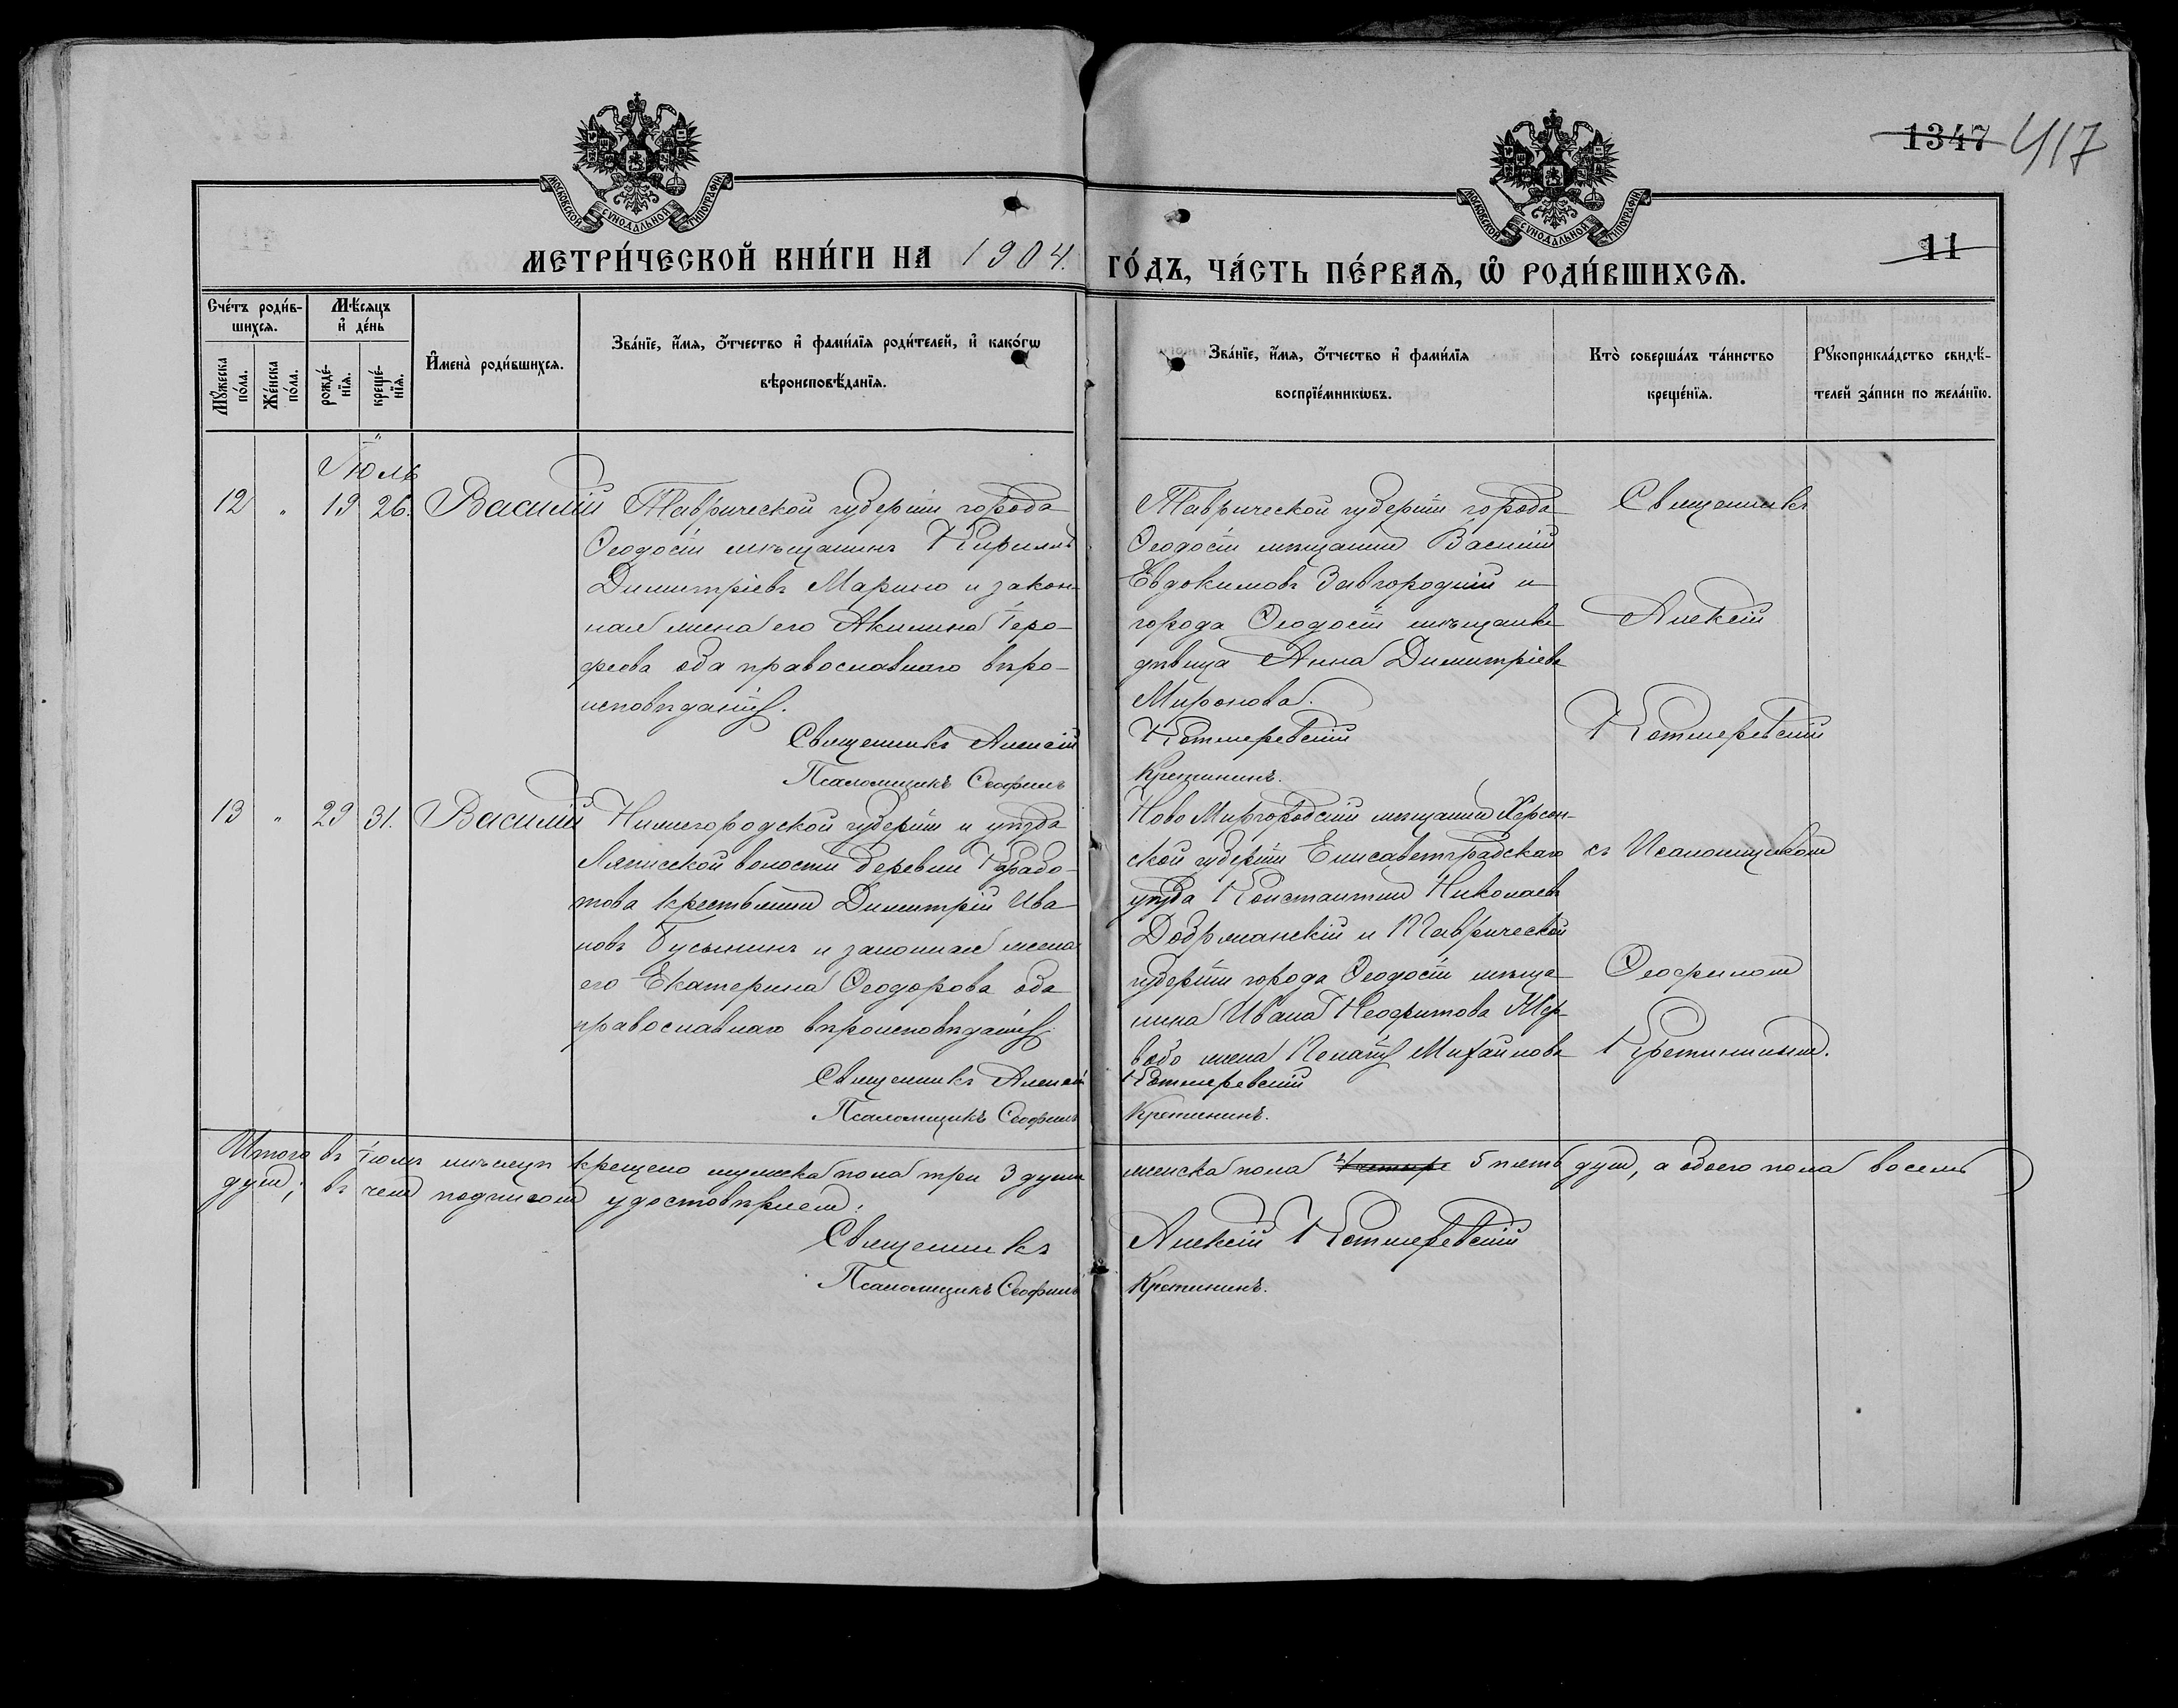 МОСКОВСКОЙ СУНОДАЛЬНОЙ ТИПОГРАФІИ
МОСКОВСКОЙ СУНОДАЛЬНОЙ ТИПОГРАФІИ
1347 417
11
МЕТРИ́ЧЕСКОЙ КНИ́ГИ НА 1904.
ГО́ДЪ, ЧА́СТЬ ПЕ́РВАѦ, Ѽ РОДИ́ВШИХСѦ.
Сче́тъ роди́в-
шихсѧ.
Мꙋ́жеска по́ла.
Же́нска по́ла.
Мѣ́сѧцъ
и҆ де́нь
рожде́-
нїѧ.
креще́-
нїѧ.
И҆мена̀ роди́вшихсѧ.
Зва́нїе, и҆́мѧ, ѻ҆́тчество и҆ фами́лїѧ роди́телей, и҆ како́гѡ
вѣроисповѣ́данїѧ.
Зва́нїе, и҆́мѧ, ѻ҆́тчество и҆ фами́лїѧ
воспрїе́мникѡвъ.
Кто̀ соверша́лъ та́инство
креще́нїѧ.
Рꙋкоприкла́дство свидѣ́-
телей за́писи по жела́нїю.
Іюль
12 " 19 26. Василій
Таврической губерніи города
Ѳеодосіи мѣщанинъ Кириллъ
Димитріевъ Марино и закон-
ная жена его Акилина Геро-
феева оба православнаго вѣро-
исповѣданія.
Священникъ Алексій
Псаломщикъ Ѳеофилъ
Таврической губерніи города
Ѳеодосіи мѣщанинъ Василій
Евдокимовъ Завгородній и
города Ѳеодосіи мѣщанка
дѣвица Анна Димитріева
Миронова.
Котлеревскій
Кретининъ.
Священникъ
Алексій
Котлеревскій
13 " 29 31. Василій
Нижегородской губерніи и уѣзда
волости деревни
това крестьянинъ Димитрій Ива-
новъ Гусынинъ и законная жена
его Екатерина Ѳеодорова оба
православнаго вѣроисповѣданія.
Священникъ Алексій
Псаломщикъ Ѳеофилъ
Ново Миргородскій мѣщанинъ Херсон-
ской губерніи Елисаветградскаго
уѣзда Константинъ Николаевъ
Добрманскій и Таврической
губерніи города Ѳеодосіи мѣща-
нина Ивана Неофитова
жена Пелагія Михаилова
Котлеревскій
Кретининъ.
съ Псаломщикомъ
Ѳеофиломъ
Кретининымъ.
Итого въ Іюлѣ мѣсяцѣ крещено мужеска пола три 3 души женска пола четыре 5 пять душъ, а обоего пола восемь
душъ; въ чемъ подписомъ удостовѣряемъ:
Священникъ Алексій Котлеревскій
Псаломщикъ Ѳеофилъ Кретининъ.